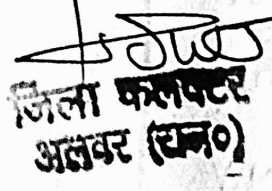 जिला कलेक्टर
अलवर (राज०)